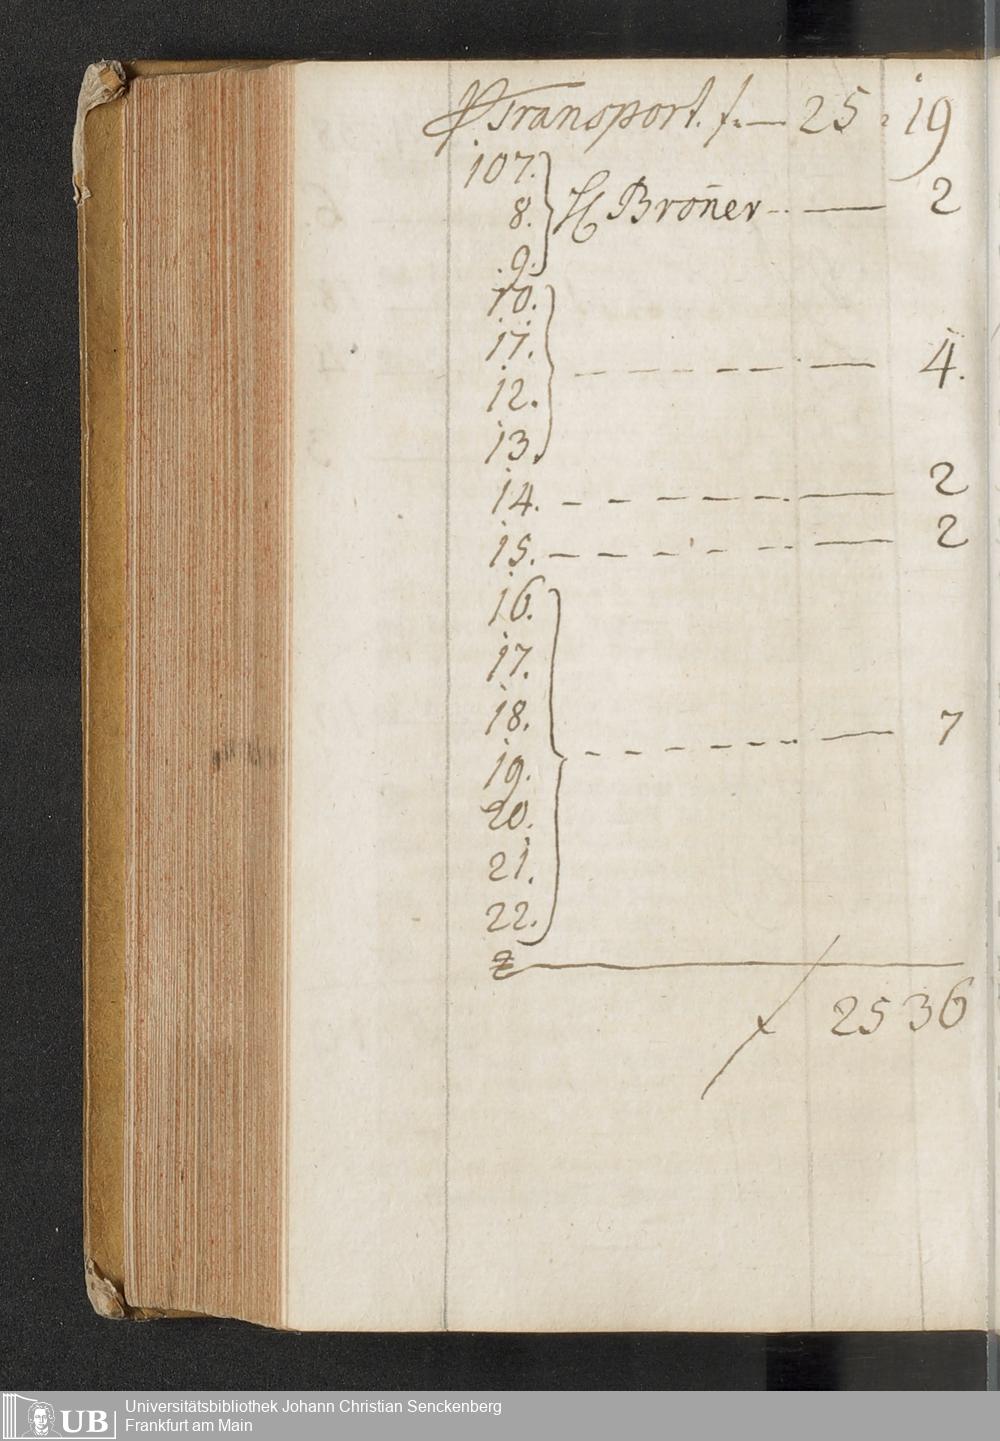 Transport. f. — 25 . 19
107.
8. H Broñer - . — 2
.9.
10.
11.
12. - - - - - — 4.
13.
14. - - - - - - — 2
15. - - - - - - — 2
16.
17.
18.
19. - - - - - - — 7
20.
21.
22.
f 25 36
UB Universitätsbibliothek Johann Christian Senckenberg
Frankfurt am Main